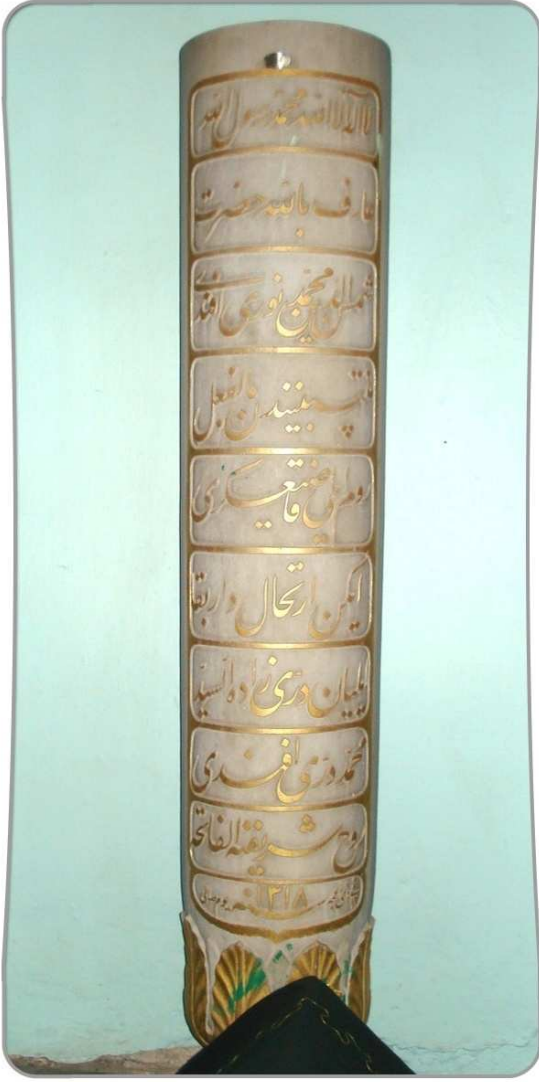 لا اله الا الله محمد رسول الله
عارف بالله حضرت
شمس الدين محمد نوری افندی
منتسبيندن بالفعل
روم ايلی قاضيعسكری
ايكن ارتحال دار بقا
ايليان دری زاده السيد
محمد دری افندی
روح شريفنه الفاتحه
سنه ١٢١٨